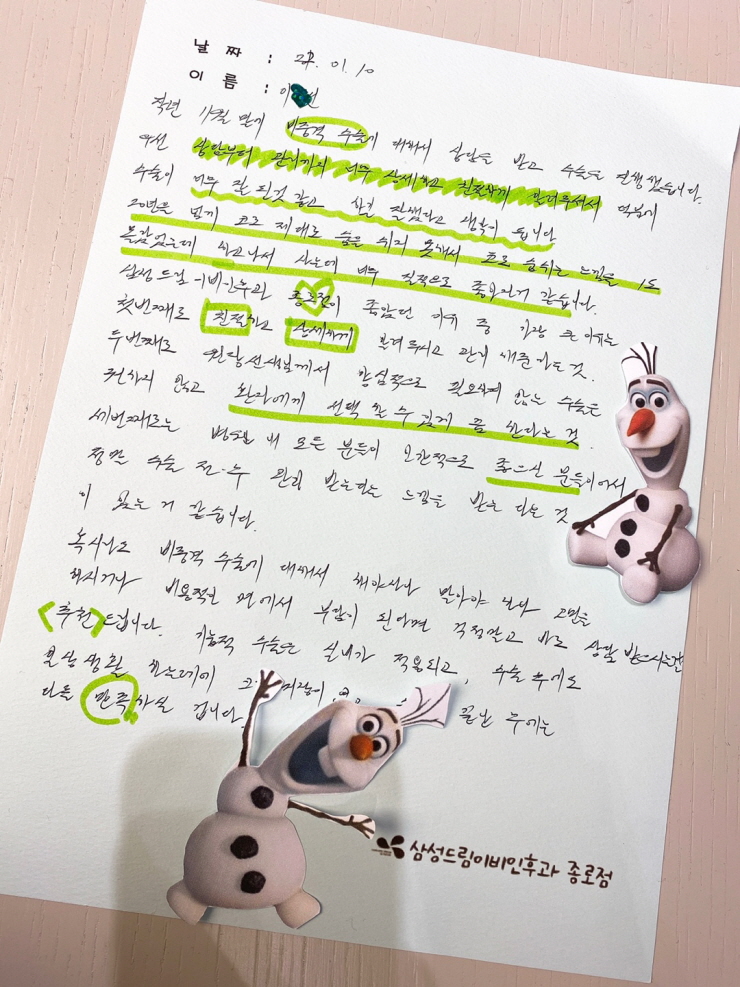 날 짜 : 24. 01. 10
이 름 : 이 선
작년 11월 말에 비중격 수술에 대해서 상담을 받고 수술을 진행했습니다.
우선 상담부터 관리까지 너무 상세하고 친절하게 알려주셔서 덕분에
수술이 너무 잘 된것 같고 한걸 잘했다고 생각이 듭니다.
20년을 넘게 코로 제대로 숨을 쉬지 못해서 코로 숨쉬는 느낌을 1도
몰랐었는데 하고나서 사는데 너무 질적으로 좋아진거 같습니다.
삼성드림이비인후과 종로점이 좋았던 이유 중 가장 큰 이유는
첫번째로 친절하고 상세하게 알려주시고 관리 해준다는 것.
두번째로 원장선생님께서 양심적으로 필요하지 않는 수술은
권하지 않고 환자에게 선택 할 수 있게 끔 한다는 것.
세번째로는 병원 내 모든 분들이 인간적으로 좋으신 분들이어서
정말 수술 전·후 관리 받는다는 느낌을 받는 다는 것
이 있는 거 같습니다.
혹시나도 비중격 수술에 대해서 해야한다 말아야 한다 고민을
하시거나 비용적인 면에서 부담이 되신다면 걱정말고 바로 상담 받으시는걸
<추천>드립니다. 기능적 수술은 실비가 적용되고, 수술 후에도
일상생활 하는데에 지장이 끝난 후에는
다들 만족하실 겁니다.
삼성드림이비인후과 종로점